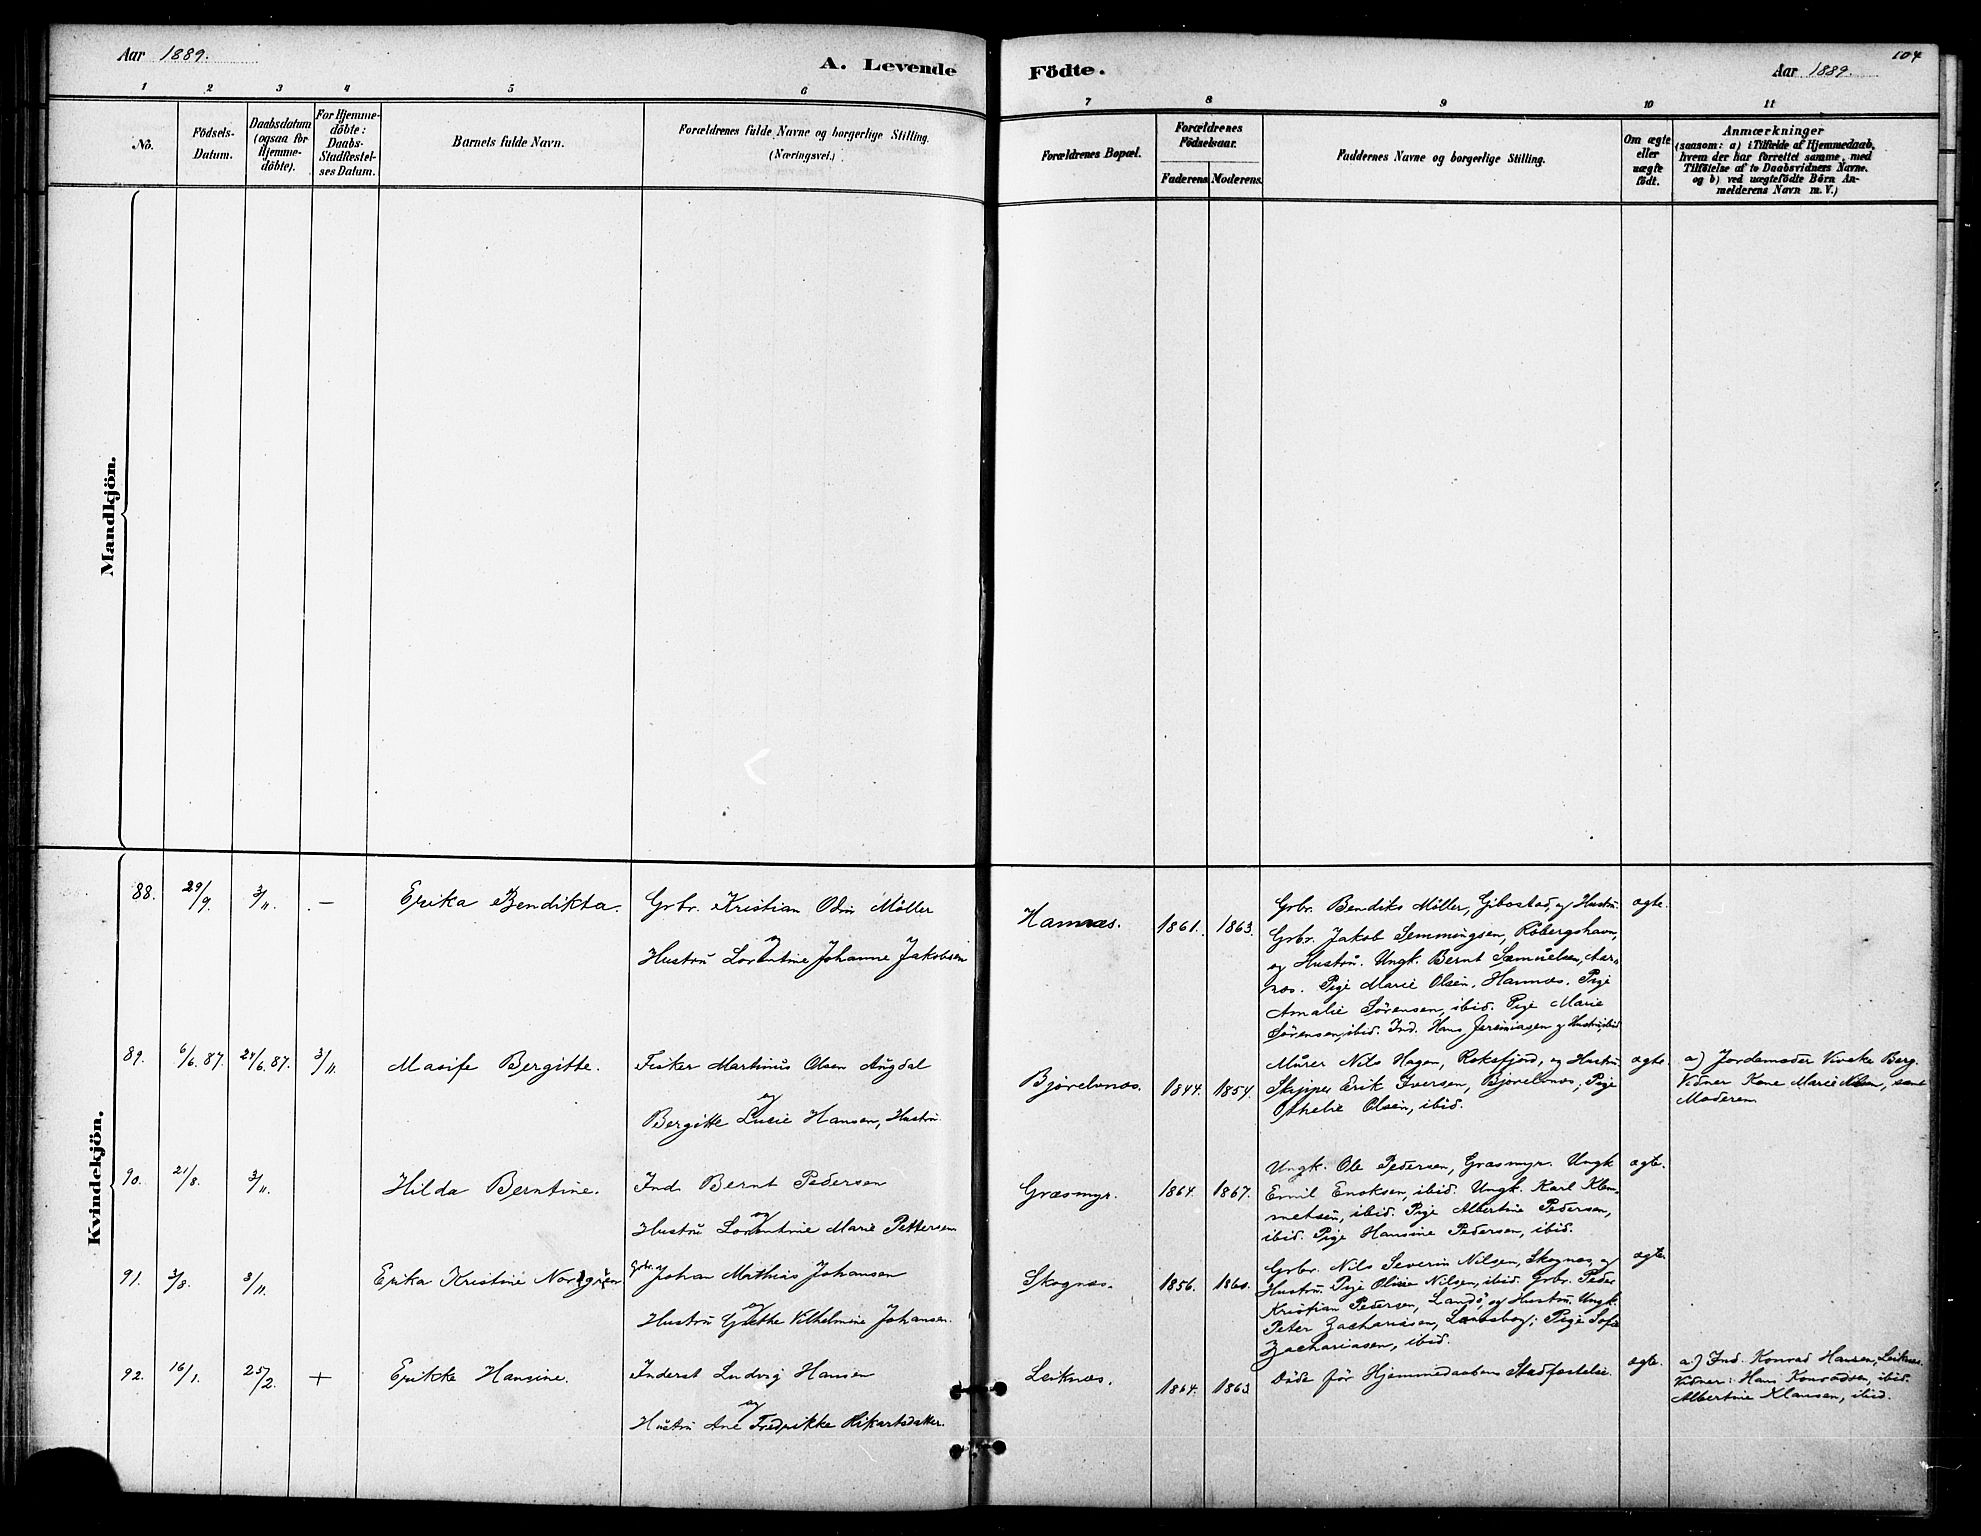 Aar 1889.
A. Levende
Födte.
Aar 1889.
104
1 2 3 4 5 6 7 8 9 10 11
No.
Födsels-
Datum.
Daabsdatum
(ogsaa for
Hjemme-
döbte).
For Hjemme-
döbte:
Daabs-
Stadfæstel-
ses Datum.
Barnets fulde Navn.
Forældrenes fulde Navne og borgerlige Stilling.
(Næringsvei.)
Forældrenes Bopæl.
Forældrenes
Födselsaar.
Faderens Moderens
Faddernes Navne og borgerlige Stilling.
Om ægte
eller
uægte
födt.
Anmærkninger
(saasom: a) i Tilfælde af Hjemmedaab,
hvem der har forrettet samme, med
Tilföielse af to Daabsvidners Navne,
og b) ved uægtefödte Börn An-
melderens Navn m. V.)
Mandkjön.
Kvindekjön.
88. 29/9. 3/11. —
Erika Bendikta.
Grbr. Kristian Odin Möller
og
Hustru Lorentine Johanne Jakobsen
Hamnæs.
1861. 1863.
Grbr. Bendiks Möller, Gibostad, og Hustru.
Grbr. Jakob Semmingsen, Röbergshavn,
og Hustru. Ungk. Bernt Samuelsen, Aar-
næs. Pige Marie Olsen, Hamnæs. Pige
Amalie Sörensen, ibid. Pige Marie
Sörensen, ibid. Ind. Hans Jeremiasen og Hustru, ibid.
ægte.
89. 6/6.87. 24/6.87. 3/11.
Masife Bergitte.
Fisker Martinus Olsen Augdal
og
Bergitte Lucie Hansen, Hustru.
Bjorelvnæs.
1844. 1854.
Murer Nils Hagen, Roksfjord, og Hustru
Skipper Erik Iversen, Bjorelvnæs; Pige
Othelie Olsen, ibid.
ægte.
a) Jordemoder Viveke Berg.
Vidner Kone Marie Nilsen, samt
Moderen
90. 21/8. 3/11.
Hilda Berntine.
Ind. Bernt Pedersen
og
Hustru Lorentine Marie Pettersen
Græsmyr.
1864. 1867.
Ungk. Ole Pedersen, Græsmyr. Ungk
Emil Enoksen, ibid. Ungk. Karl Klem-
metsen, ibid. Pige Albertine Pedersen,
ibid. Pige Hansine Pedersen, ibid.
ægte.
91. 3/8. 3/11.
Erika Kristine Nordgrén
Grbr. Johan Mathias Johansen
og
Hustru Grethe Vilhelmine Johansen.
Skognæs.
1856. 1860.
Grbr. Nils Severin Nilsen, Skognæs, og
Hustru. Pige Oline Nilsen, ibid. Grbr. Peder
Kristian Pedersen, Landö, og Hustru. Ungk.
Peter Zachariasen, ; Pige Sofie
Zachariasen, ibid.
ægte
92. 16/1. 25/2. +
Erikke Hansine.
Inderst Ludvig Hansen
og
Hustru Ane Fredrikke Rikartsdatter.
Leiknæs.
1864. 1863
Döde för Hjemmedaabens Stadfæstelse.
ægte.
a) Ind. Konrad Hansen, Leiknæs.
Vidner: Hans Konradsen, ibid.
Albertine Klausen, ibid.